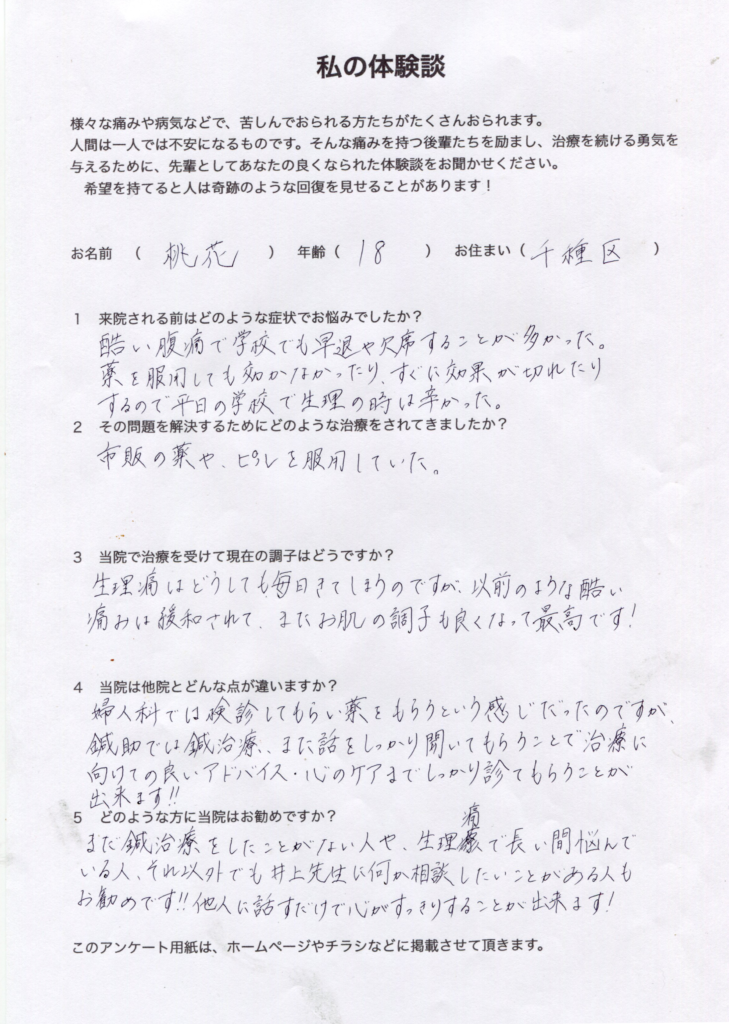 私の体験談
様々な痛みや病気などで、苦しんでおられる方たちがたくさんおられます。
人間は一人では不安になるものです。そんな痛みを持つ後輩たちを励まし、治療を続ける勇気を
与えるために、先輩としてあなたの良くなられた体験談をお聞かせください。
希望を持てると人は奇跡のような回復を見せることがあります！
お名前 （ 桃花 ） 年齢（ 18 ） お住まい（ 千種区 ）
1 来院される前はどのような症状でお悩みでしたか？
酷い腹痛で学校でも早退や欠席することが多かった。
薬を服用しても効かなかったり、すぐに効果が切れたり
するので平日の学校で生理の時は辛かった。
2 その問題を解決するためにどのような治療をされてきましたか？
市販の薬や、ピルを服用していた。
3 当院で治療を受けて現在の調子はどうですか？
生理痛はどうしても毎日きてしまうのですが、以前のような酷い
痛みは緩和されて、またお肌の調子も良くなって最高です！
4 当院は他院とどんな点が違いますか？
婦人科では検診してもらい薬をもらうという感じだったのですが、
鍼助では鍼治療、また話をしっかり聞いてもらうことで治療に
向けての良いアドバイス・心のケアまでしっかり診てもらうことが
出来ます!!
5 どのような方に当院はお勧めですか？
まだ鍼治療をしたことがない人や、生理痛で長い間悩んで
いる人、それ以外でも井上先生に何か相談したいことがある人も
お勧めです!!他人に話すだけで心がすっきりすることが出来ます!
このアンケート用紙は、ホームページやチラシなどに掲載させて頂きます。